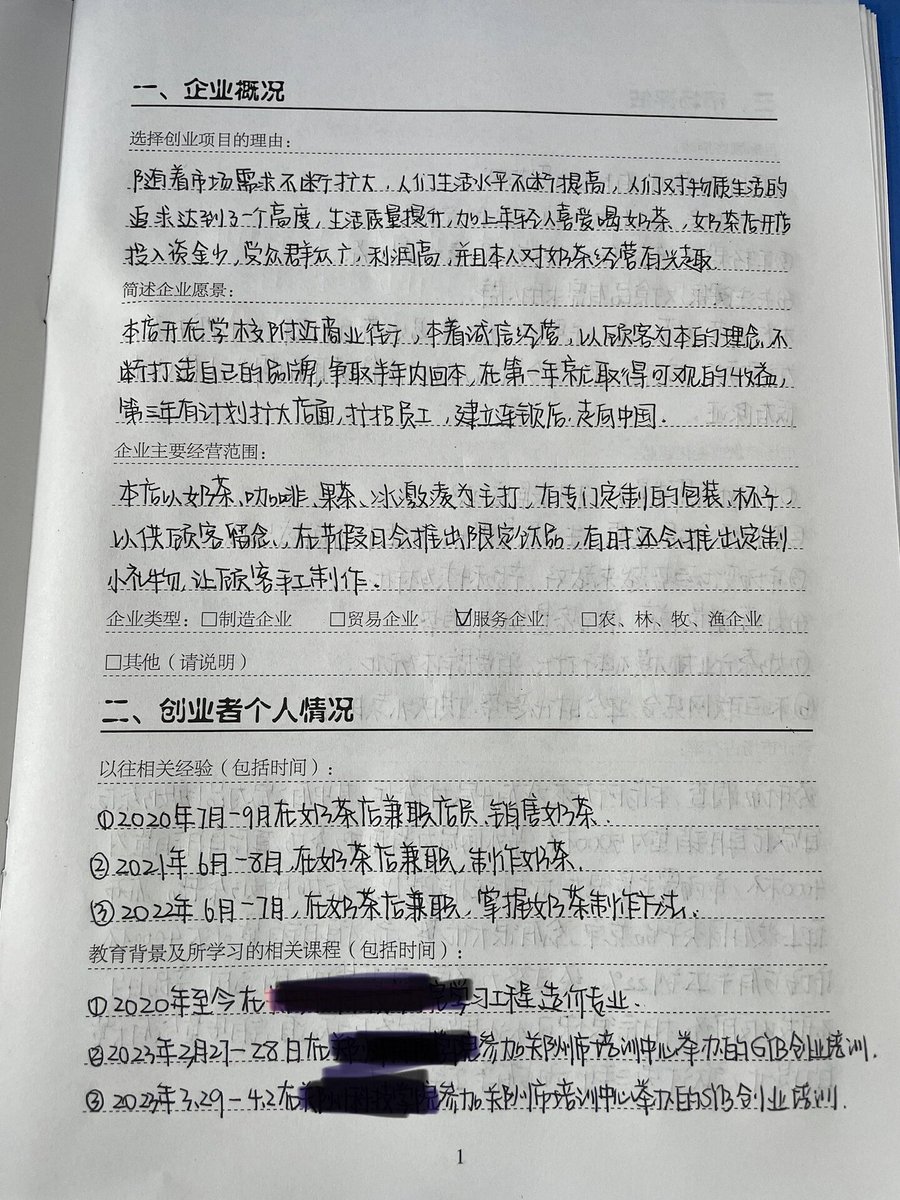 一、企业概况
选择创业项目的理由:
随着市场需求不断扩大,人们生活水平不断提高,人们对物质生活的
追求达到了一个高度,生活质量提升,加上年轻人喜爱喝奶茶,奶茶店开店
投入资金少,受众群众广,利润高,并且本人对奶茶经营有兴趣
简述企业愿景:
本店开在学校附近商业街,本着诚信经营,以顾客为本的理念,不
断打造自己的品牌,争取半年内回本,在第一年就取得可观的收益,
第三年有计划扩大店面,扩招员工,建立连锁店.走向中国.
企业主要经营范围:
本店以奶茶、咖啡、果茶、冰激凌为主打,有专门定制的包装、杯子,
以供顾客留念,在节假日会推出限定饮品,有时还会推出定制
小礼物,让顾客手工制作.
企业类型:□制造企业 □贸易企业 ☑服务企业 □农、林、牧、渔企业
□其他(请说明)
二、创业者个人情况
以往相关经验(包括时间):
①2020年7月-9月在奶茶店兼职店员、销售奶茶.
②2021年6月-8月,在奶茶店兼职,制作奶茶.
③2022年6月-7月,在奶茶店兼职,掌握奶茶制作方法.
教育背景及所学习的相关课程(包括时间):
①2020年至今在学习工程造价专业.
②2023年2月27-28日在参加郑州市培训中心举办的GYB创业培训.
③2023年3.29-4.2在参加郑州市培训中心举办的SYB创业培训.
1